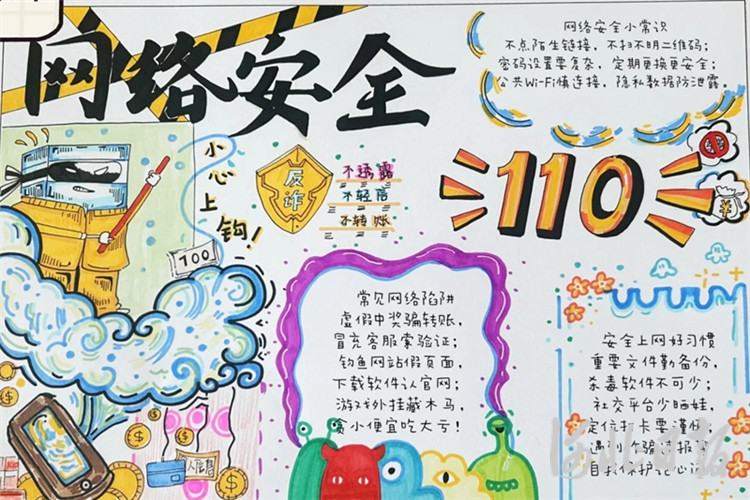 网络安全
网络安全小常识
不点陌生链接，不扫不明二维码；
密码设置要复杂，定期更换更安全；
公共Wi-Fi慎连接，隐私数据防泄露。
小心上钩！
反诈
不透露
不轻信
不转账
110
100
常见网络陷阱
虚假中奖骗转账，
冒充客服索验证；
钓鱼网站假页面，
下载软件认官网；
游戏外挂藏木马，
贪小便宜吃大亏！
安全上网好习惯
重要文件勤备份，
杀毒软件不可少；
社交平台少晒娃，
定位打卡要谨慎
遇到诈骗
自我保护记心